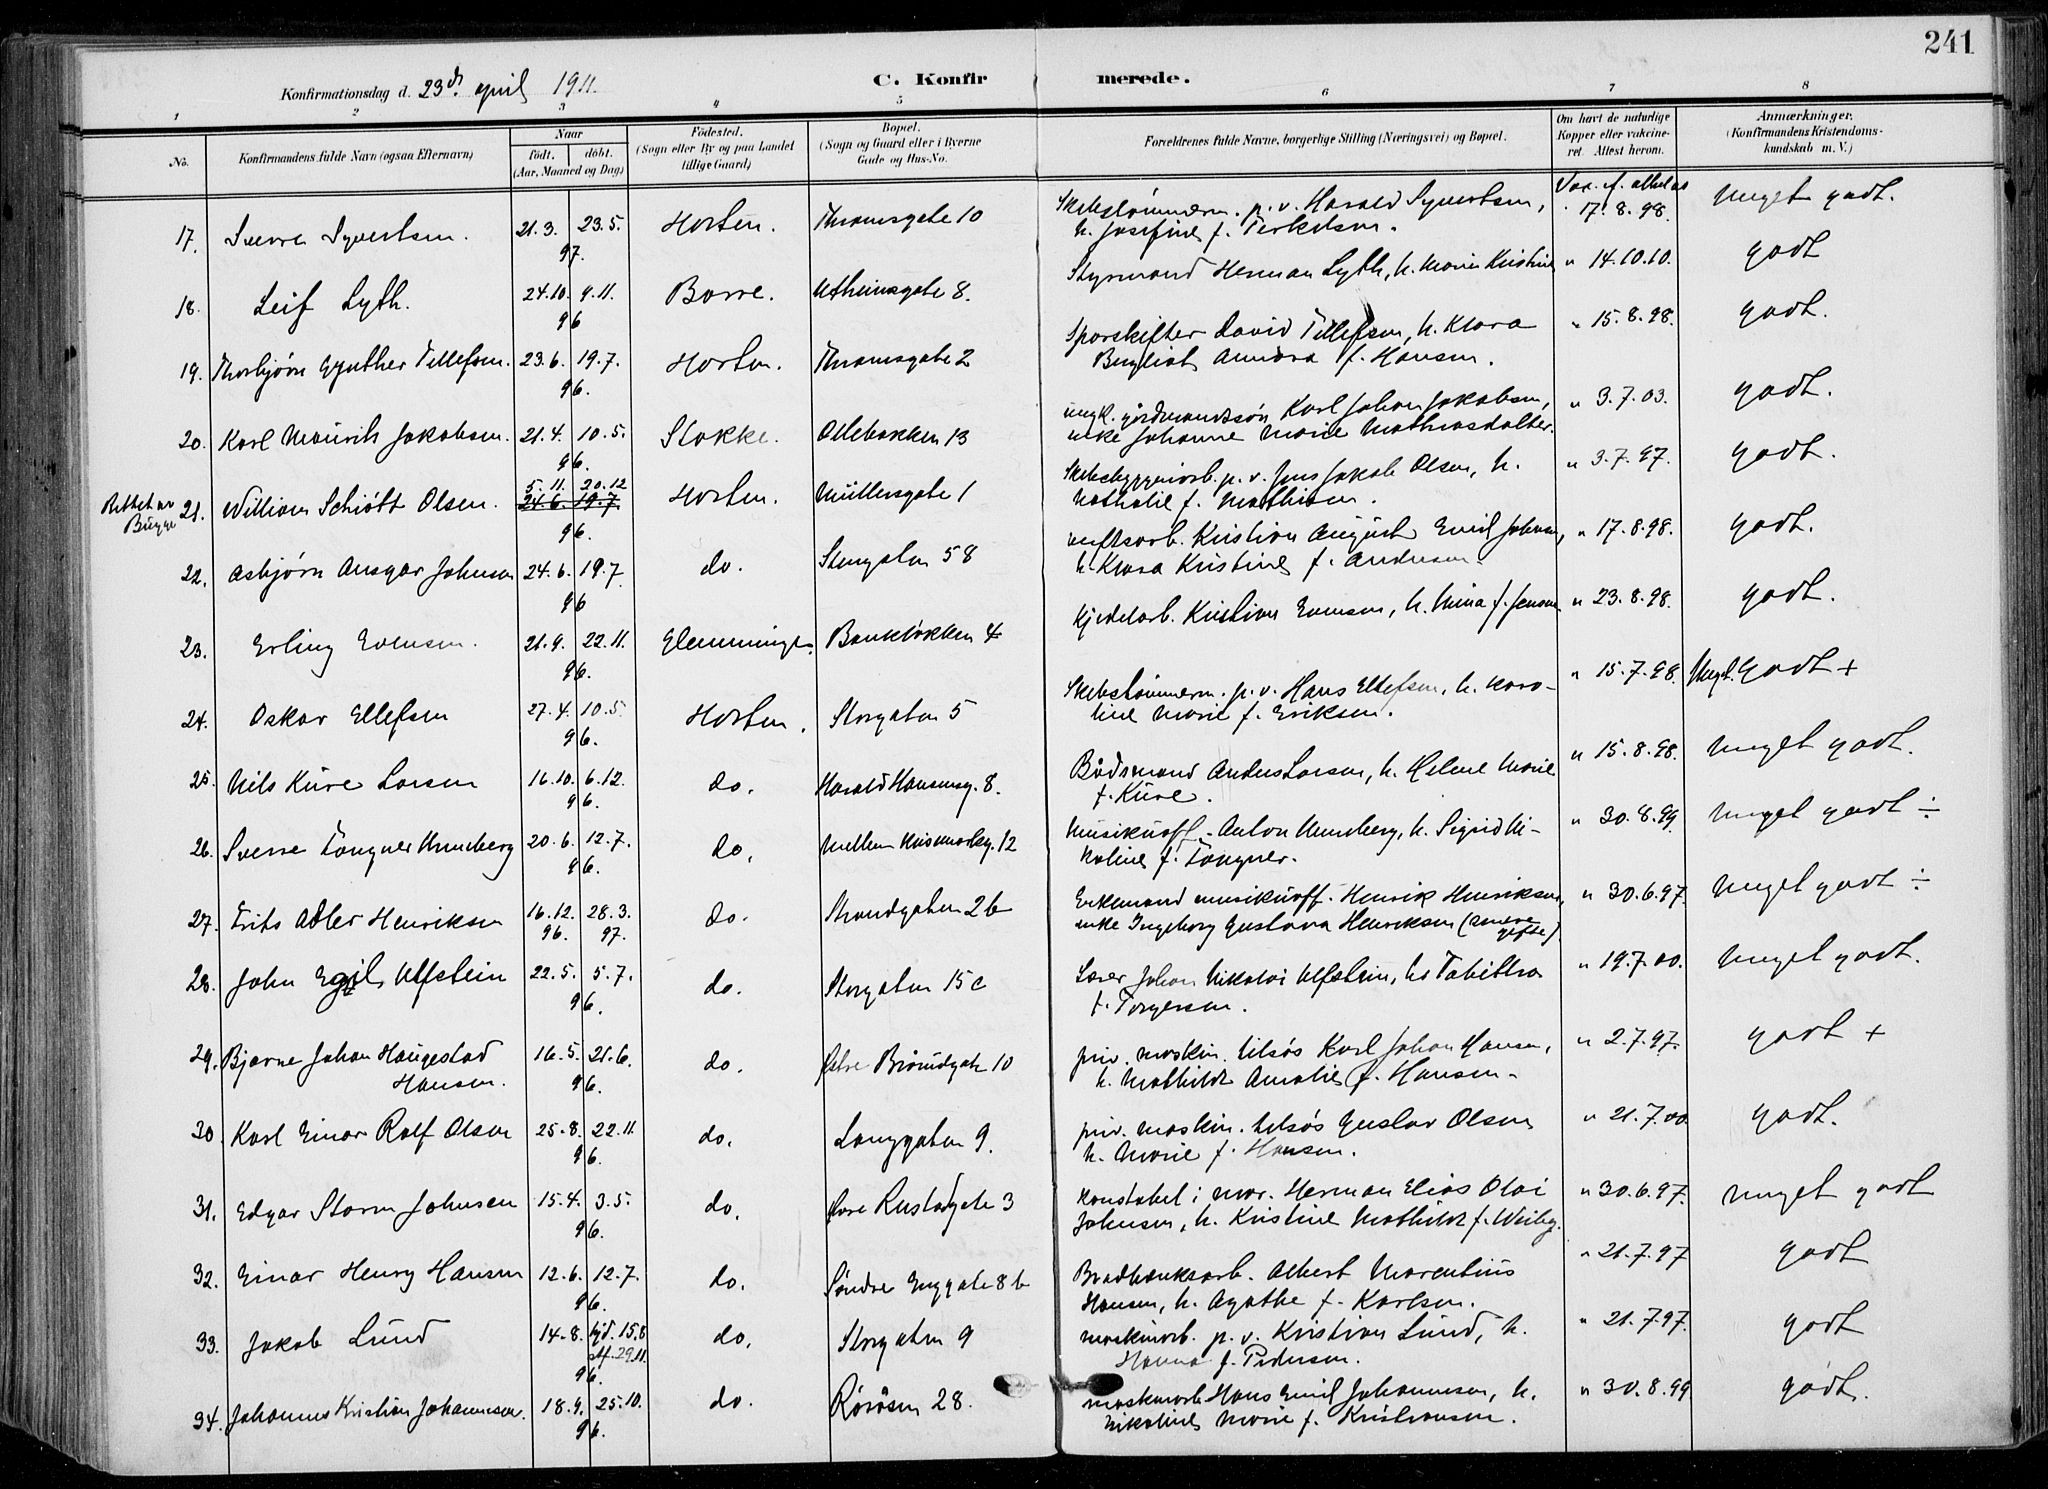 241
C. Konfirmerede.
Konfirmationsdag d. 23de april 1911.
1 2 3 4 5 6 7 8
No. Konfirmandens fulde Navn (ogsaa Efternavn) Naar født. døbt. (Aar, Maaned og Dag) Fødested. (Sogn eller By og paa Landet tillige Gaard) Bopæl. (Sogn og Gaard eller i Byerne Gade og Hus-No. Forældrenes fulde Navne, borgerlige Stilling (Næringsvei) og Bopæl. Om havt de naturlige Kopper eller vakcineret. Attest herom. Anmærkninger. (Konfirmandens Kristendomskundskab m. V.)
17. Sverre Syvertsen. 21.3. 23.5. 97. Horten. Thronsgate 10 Skibstømmerm. p. v. Harald Syvertsen, Vac. 17.8.98. Meget godt.
h. Josefine f. Terkelsen.
18. Leif Lyth. 24.10. 9.11. 96 Borre. Utheimsgate 8. Styrmand Herman Lyth, h. Marie Kristine " 14.10.10. godt
19. Thorbjørn Gynther Tellefsen. 23.6. 19.7. 96. Horten. Thronsgate 2 Sporskifter David Tellefsen, h. Klara " 15.8.98. godt.
Bergliot Annæra f. Hansen.
20. Karl Mauritz Jakobsen. 21.4. 10.5. 96. Stokke. Ollebakken 13 ungk. gårdmandssøn Karl Johan Jakobsen, " 3.7.03. godt.
enke Johanne Marie Mathiasdatter.
Rettet av Bugge 21. William Schiøtt Olsen. 5.11. 20.12 24.6. 19.7 96. Horten. Müllersgate 1 Skibsbyggeriarb. p. v. Jens Jakob Olsen, h. " 3.7.97. godt.
Nathalie f. Mathisen.
22. Asbjørn Ansgar Johnsen 24.6. 19.7 96 do. Storgaten 58 Kristian August Emil Johnsen, " 17.8.98. godt.
h. Klara Kristine f. Andersen.
23. Erling Evensen. 21.9. 22.11. 96. Glemminge. Bankløkken 4 Kjedelarb. Kristian Evensen, h. Mina f. Jensen " 23.8.98. godt.
24. Oskar Ellefsen 27.4. 10.5. 96. Horten. Storgaten 5 Skibstømmerm. p. v. Hans Ellefsen, h. Karo- " 15.7.98. Meget godt +
line Marie f. Eriksen.
25. Nils Küre Larsen 16.10. 6.12. 96. do. Harald Hansensg. 8. Bådsmand Anders Larsen, h. Helene Marie " 15.8.98. meget godt.
f. Küre.
26. Sverre Tongner Unneberg 20.6. 12.7. 96. do. Mellem 12 Musikuoff. Anton Unneberg, h. Sigrid Ni- " 30.8.99. meget godt ÷
koline f. Tongner.
27. Frits Adler Henriksen 16.12. 96. 28.3. 97. do. Strandgaten 2b Enkemand musikuoff. Henrik Henriksen, " 30.6.97. Meget godt ÷
enke Ingeborg Gustava Henriksen (senere gifte)
28. John Egil Ulfstein 22.5. 5.7. 96. do. Storgaten 15c Lærer Johan Nikolai Ulfstein, h. Tabitha " 19.7.00. meget godt.
f. Torgersen.
29. Bjarne Johan Haugestad Hansen. 16.5. 21.6. 96. do. Østre Bråradgate 10 priv. maskin. tilsøs Karl Johan Hansen, " 2.7.97. godt +
h. Mathilde Amalie f. Hansen.
30. Karl Einar Rolf Olsen 25.8. 22.11. 96. do. Langgaten 9. priv. maskin. tilsøs Gustav Olsen " 21.7.00. godt.
h. Marie f. Hansen.
31. Edgar Storm Johnsen 15.4. 3.5. 96. do. Øvre Rustadgate 3 Konstabel i mar. Herman Elias Olai " 30.6.97. meget godt
Johnsen, h. Kristine Mathilde f. Weiby.
32. Einar Henry Hansen 12.6. 12.7. 96. do. Søndre Enggate 8b Brødbænksarb. Albert Marentius " 21.7.97 godt
Hansen, h. Agathe f. Karlsen.
33. Jakob Lund 14.8. hjd. 15.8 st. 29.11. 96. do. Storgaten 9 maskinarb. p. v. Kristian Lund, h. " 21.7.97. godt
Hanna f. Pedersen.
34. Johannes Kristian Johannesen. 18.9. 25.10. 96. do. Røråsen 28. maskinarb Hans Emil Johannesen, h. " 30.8.99 godt.
Nikoline Marie f. Kristiansen.